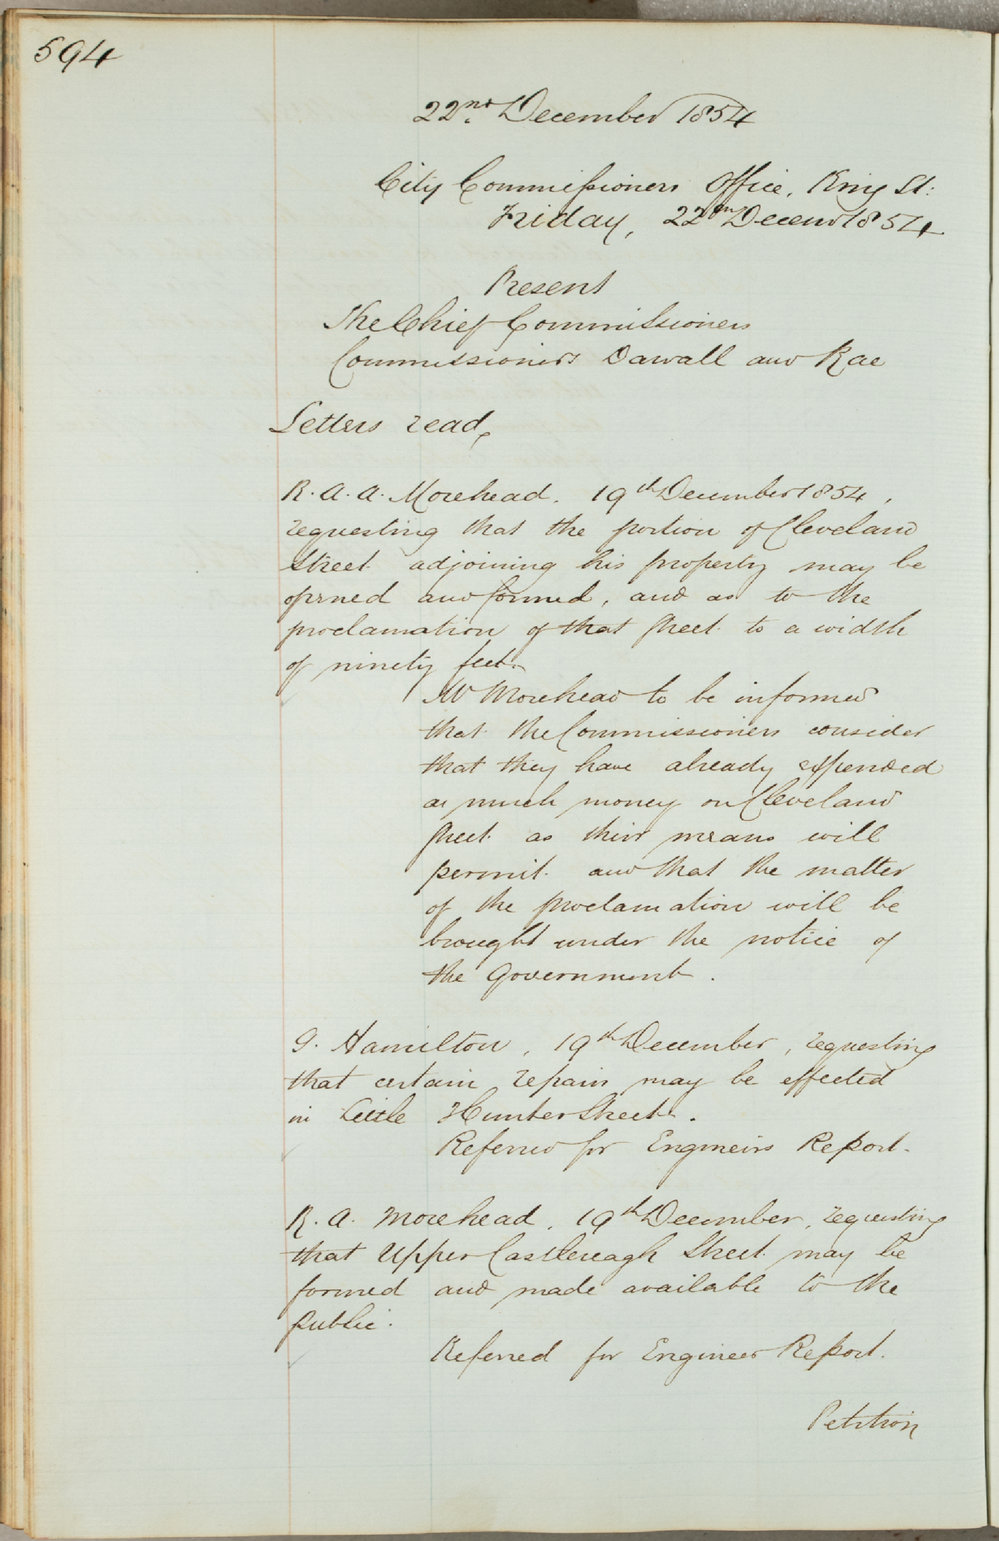 594
22nd December 1854
City Commissioners Office, King St:
Friday, 22nd Decem 1854
Present
The Chief Commissioners
Commissioners Darvall and Rae
Letters read,
R. A. A. Morehead. 19th December 1854,
requesting that the portion of Cleveland
Street adjoining his property may be
opened and formed, and as to the
proclamation of that Street to a width
of ninety feet.
Mr Morehead to be informed
that the Commissioners consider
that they have already expended
as much money on Cleveland
Street as their means will
permit and that the matter
of the proclamation will be
brought under the notice of
the Government.
G. Hamilton, 19th December, requesting
that certain repairs may be effected
in Little Hunter Street.
Referred for Engineers Report.
R. A. Morehead, 19th December, requesting
that Upper Castlereagh Street may be
formed and made available to the
public.
Referred for Engineer Report.
Petition